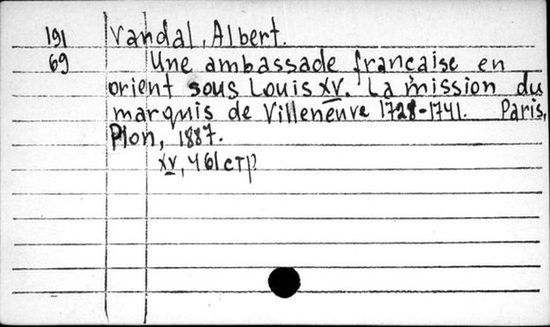 191 Vandal, Albert.
69 Une ambassade française en
orient sous Louis XV. La mission du
marquis de Villeneuve 1728-1741. Paris,
Plon, 1887.
XV, 461 стр.